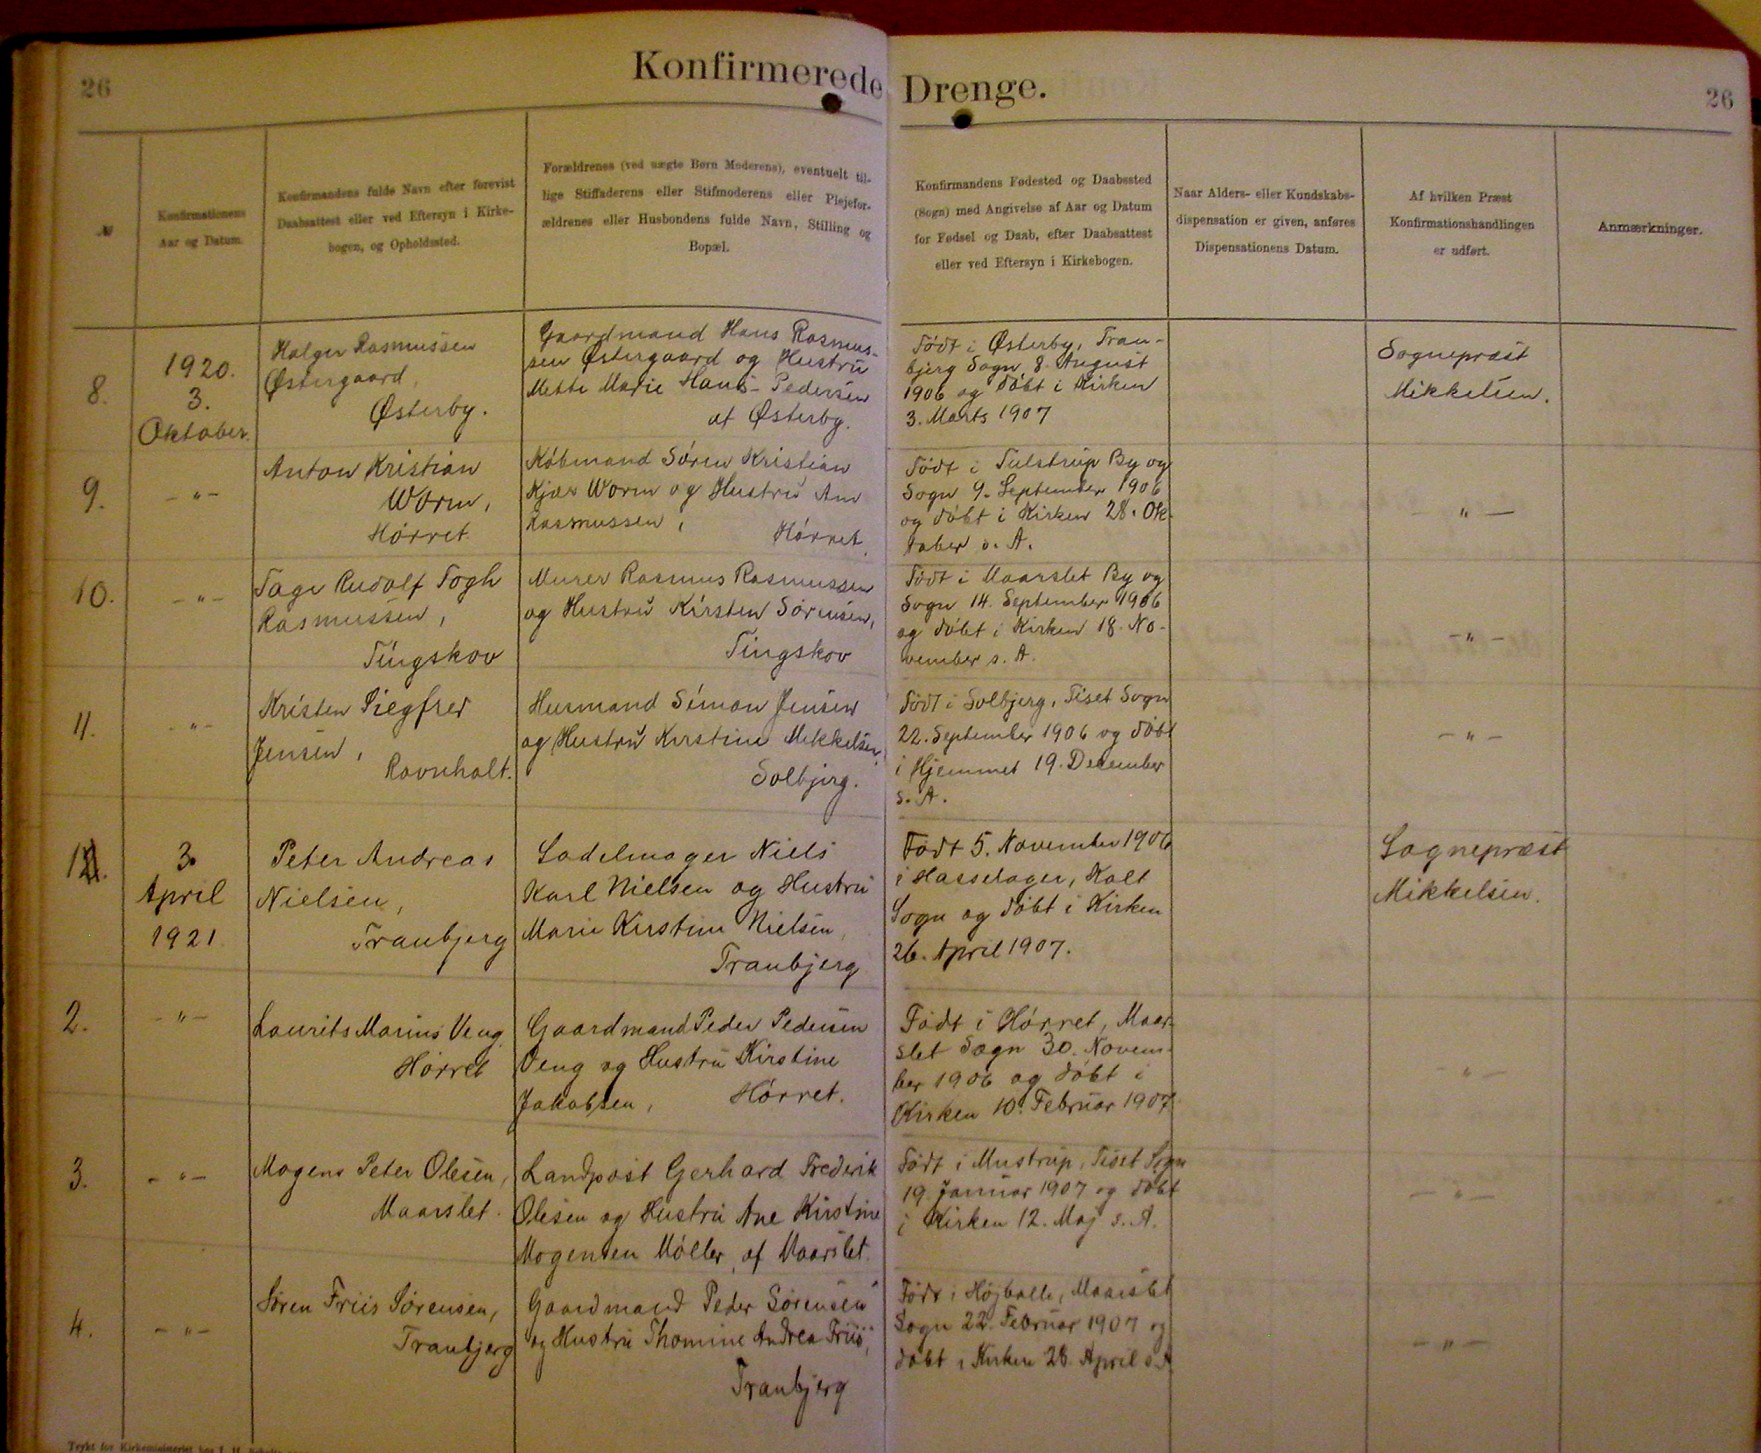 26
Konfirmerede Drenge.
26
№
Konfirmationens
Aar og Datum.
Konfirmandens fulde Navn efter forevist
Daabsattest eller ved Eftersyn i Kirke-
bogen, og Opholdssted.
Forældrenes (ved uægte Børn Moderens), eventuelt til-
lige Stiffaderens eller Stifmoderens eller Plejefor-
ældrenes eller Husbondens fulde Navn, Stilling og
Bopæl.
Konfirmandens Fødested og Daabssted
(Sogn) med Angivelse af Aar og Datum
for Fødsel og Daab, efter Daabsattest
eller ved Eftersyn i Kirkebogen.
Naar Alders- eller Kundskabs-
dispensation er given, anføres
Dispensationens Datum.
Af hvilken Præst
Konfirmationshandlingen
er udført.
Anmærkninger.
8.
1920.
3.
Oktober.
Holger Rasmussen
Østergaard,
Østerby.
Gaardmand Hans Rasmus-
sen Østergaard og Hustru
Mette Marie Hans-Pedersen
af Østerby.
Født i Østerby, Tran-
bjerg Sogn 8. August
1906 og døbt i Kirken
3. Marts 1907
Sognepræst
Mikkelsen.
9.
-"-
Anton Kristian
Worm,
Hørret
Købmand Søren Kristian
Kjær Worm og Hustru Ane
Rasmussen, Hørret,
Født i Tulstrup By og
Sogn 9. September 1906
og døbt i Kirken 28. Ok-
tober s. A.
-"-
10.
-"-
Tage Rudolf Togh
Rasmussen,
Tingskov
Murer Rasmus Rasmussen
og Hustru Kirsten Sørensen,
Tingskov
Født i Maarslet By og
Sogn 14. September 1906
og døbt i Kirken 18. No-
vember s. A.
-"-
11.
-"-
Kristen Siegfred
Jensen,
Ravnholt.
Husmand Simon Jensen
og Hustru Kirstine Mikkelsen,
Solbjerg.
Født i Solbjerg, Tiset Sogn
22. September 1906 og døbt
i Hjemmet 19. December
s. A.
-"-
1.
3.
April
1921.
Peter Andreas
Nielsen,
Tranbjerg
Sadelmager Niels
Karl Nielsen og Hustru
Marie Kirstine Nielsen,
Tranbjerg
Født 5. November 1906
i Hasselager, Kolt
Sogn og døbt i Kirken
26. April 1907.
Sognepræst
Mikkelsen.
2.
-"-
Laurits Marius Veng
Hørret
Gaardmand Peder Pedersen
Veng og Hustru Kirstine
Jakobsen, Hørret.
Født i Hørret, Maar-
slet Sogn 30. Novem-
ber 1906 og døbt i
Kirken 10. Februar 1907
-"-
3.
-"-
Mogens Peter Olesen,
Maarslet.
Landpost Gerhard Frederik
Olesen og Hustru Ane Kirstine
Mogensen Møller, af Maarslet.
Født i Mustrup, Tiset Sogn
19. Januar 1907 og døbt
i Kirken 12. Maj s. A.
-"-
4.
-"-
Søren Friis Sørensen,
Tranbjerg
Gaardmand Peder Sørensen
og Hustru Thomine Andrea Friis,
Tranbjerg
Født i Højballe, Maarslet
Sogn 22. Februar 1907 og
døbt i Kirken 28. April s. A
-"-